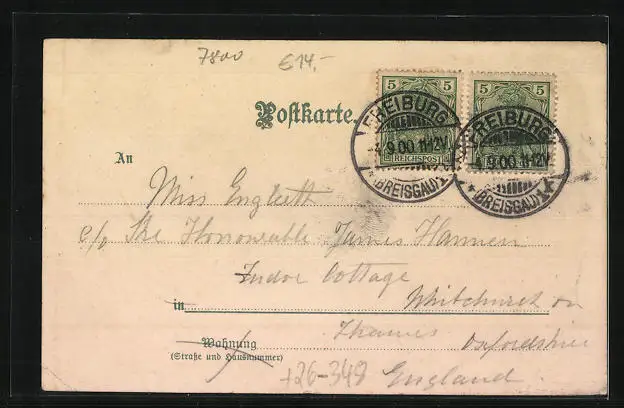 7800 €14,-
Postkarte.
5 5 5 5
REICHSPOST
FREIBURG
-4.9.00.11-12V.
*(BREISGAU)*
FREIBURG
-4.9.00.11-12V.
*(BREISGAU)*
An
Miss
c/o The Honourable James Hannen
Tudor Cottage
in Whitchurch on
Thames Oxfordshire
Wohnung
(Straße und Hausnummer)
+26-348 England